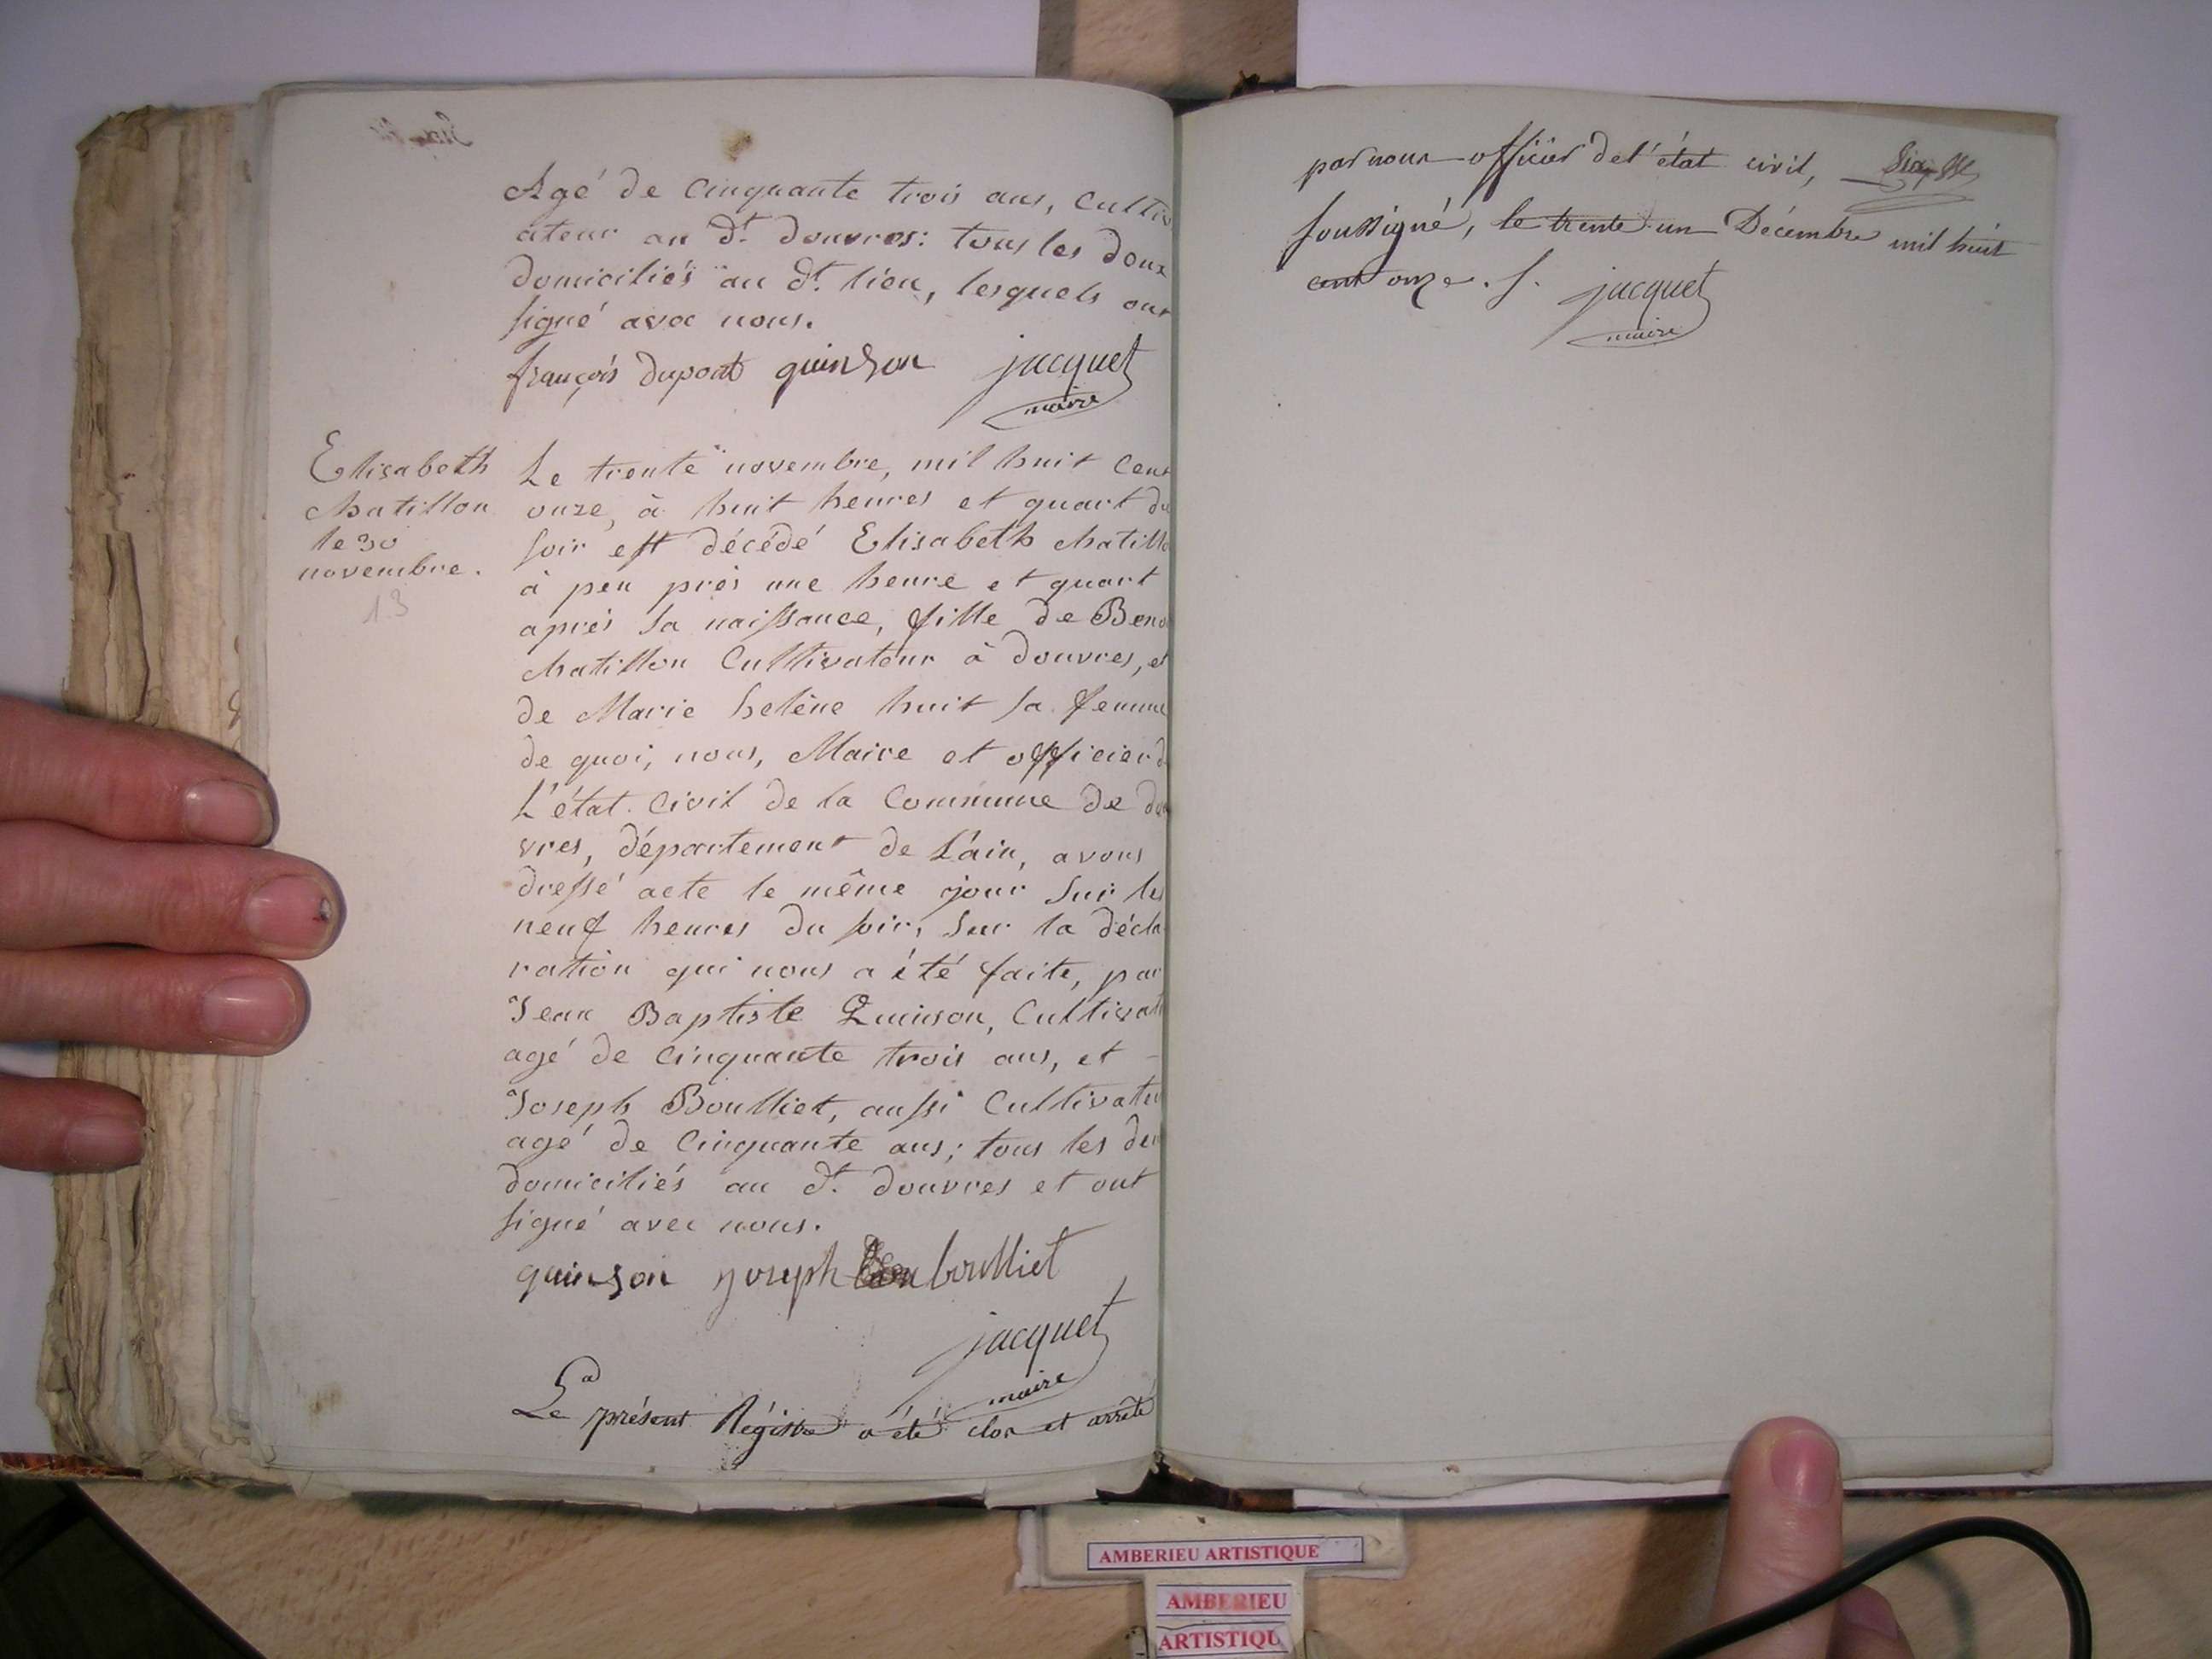 Agé de cinquante trois ans, Cultiv
ateur au dt. douvres: tous les deux
domiciliés au dt. lieu, lesquels ont
signé avec nous.
françois dupont quinson jacquet
maire
Elisabeth
chatillon
le 30
novembre.
13
Le trente novembre, mil huit cent
onze, à huit heures et quart du
soir est décédé Elisabeth chatillo
à peu près une heure et quart
après sa naissance, fille de Beno
chatillon Cultivateur à douvres, et
de Marie helène huit sa femme
de quoi, nous, Maire et officier d
L'état civil de la Commune de dou
vres, département de L'ain, avons
dressé acte le même jour sur les
neuf heures du soir, sur la décla
ration qui nous a été faite, par
Jean Baptiste Quinson, Cultivat
agé de cinquante trois ans, et
Joseph Boulliet, aussi Cultivateu
agé de cinquante ans; tous les deu
domiciliés au dt. douvres et ont
signé avec nous.
quinson joseph boulliet
jacquet
maire
Le présent Régistre a été clos et arrêté
par nous officier de l'état civil,
soussigné, le trente un Décembre mil huit
cent onze. S. jacquet
maire
AMBERIEU ARTISTIQUE
AMBERIEU
ARTISTIQU